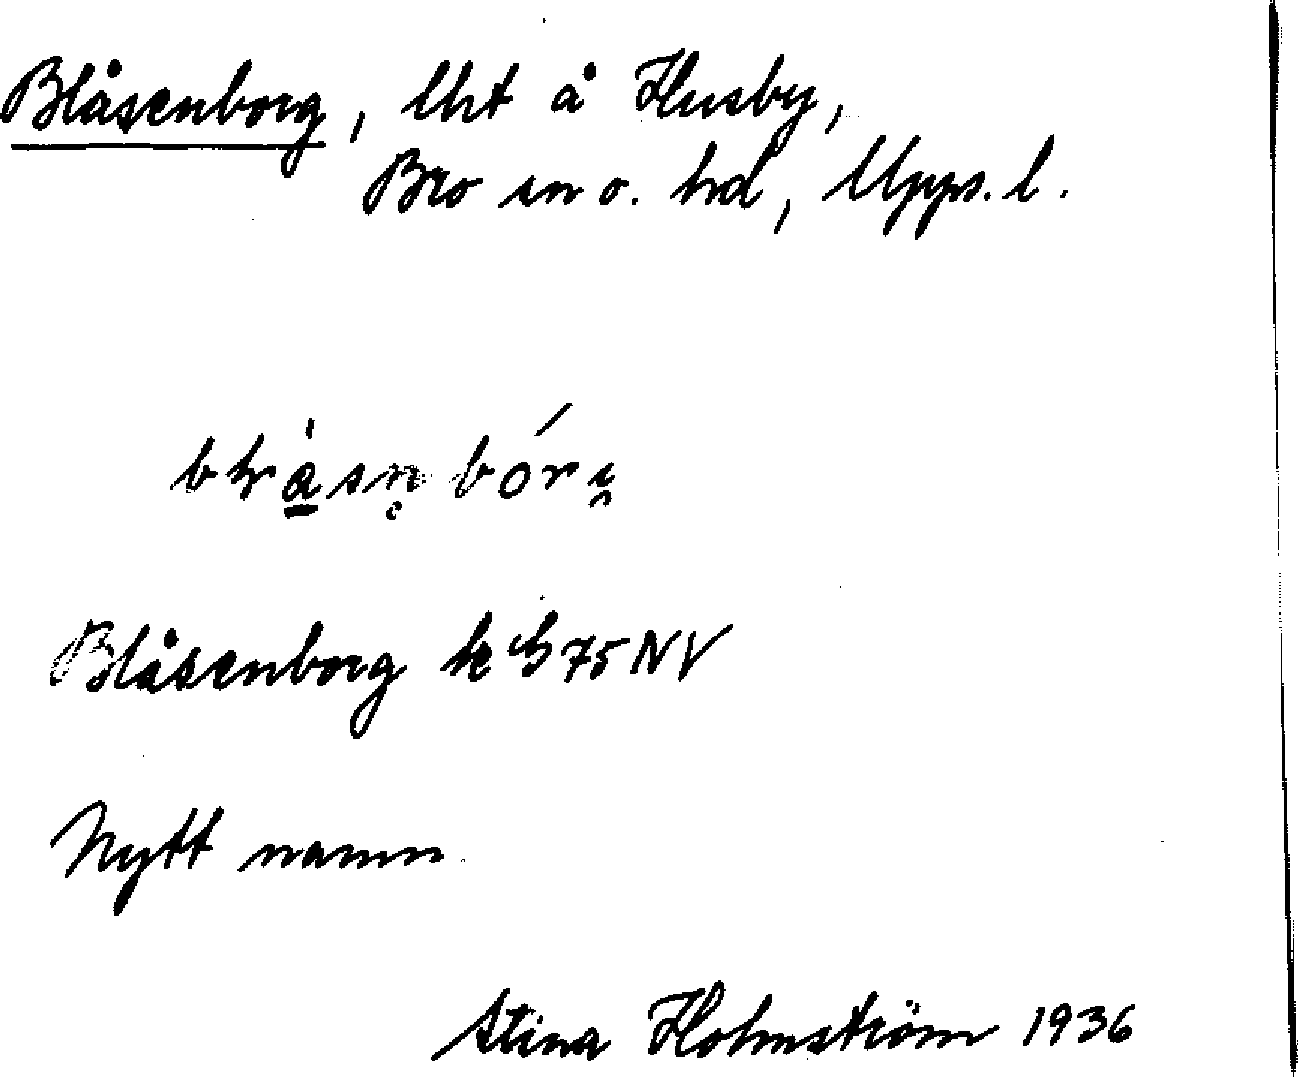 Blåsenborg, lht å Husby,
Bro sn o. hd, Upps. l.
Blåsenborg k 75 NV
Nytt namn
Stina Holmström 1936